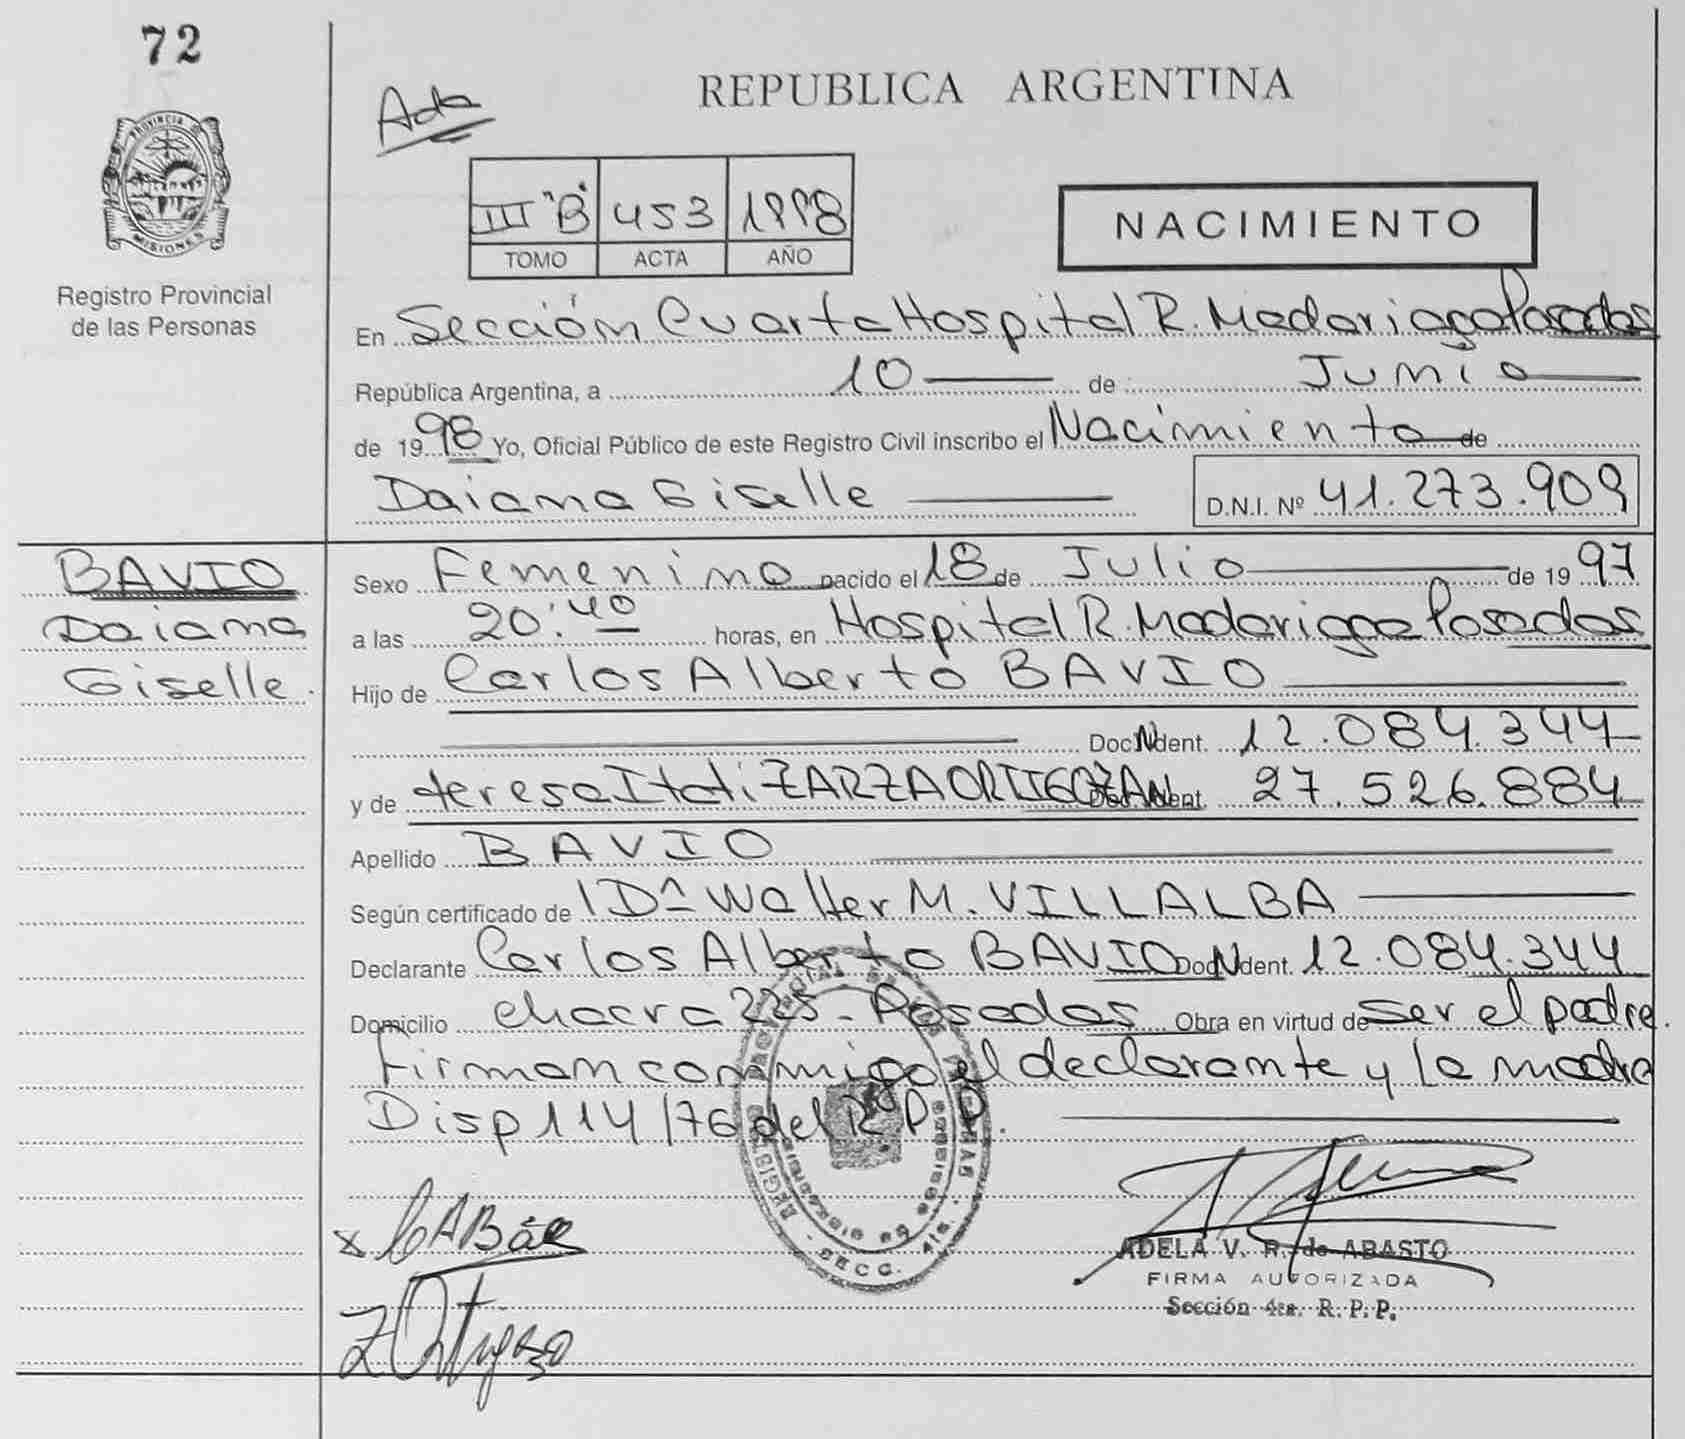 72
PROVINCIA DE
MISIONES
Registro Provincial
de las Personas
REPUBLICA ARGENTINA
III "B" 453 1998
TOMO ACTA AÑO
NACIMIENTO
En Sección Cuarta Hospital R. Madariaga Posadas
República Argentina, a 10 de Junio
de 1998 Yo, Oficial Público de este Registro Civil inscribo el Nacimiento de
Daiana Giselle D.N.I. Nº 41.273.909
BAVIO
Daiana
Giselle.
Sexo Femenino nacido el 18 de Julio de 1997
a las 20:40 horas, en Hospital R. Madariaga Posadas
Hijo de Carlos Alberto BAVIO
Doc. Ident. 12.084.344
y de teresa Itati ZARZA ORTIGOZA Doc. Ident. 27.526.884
Apellido BAVIO
Según certificado de Walter M. VILLALBA
Declarante Carlos Alberto BAVIO Doc. Ident. 12.084.344
Domicilio chacra 225 - Posadas Obra en virtud de ser el padre.
Firman conmigo el declarante y la madre
Disp 114/76 del R.P.P.
ADELA V. R. de ABASTO
FIRMA AUTORIZADA
Sección 4ta. R. P. P.